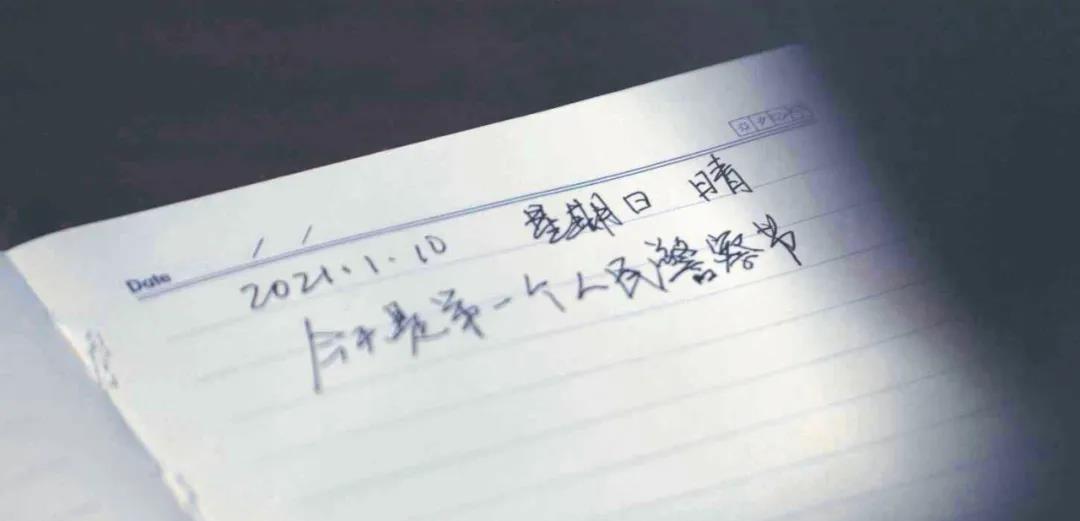 Date / /
2021.1.10 星期日 晴
今天是第一个人民警察节